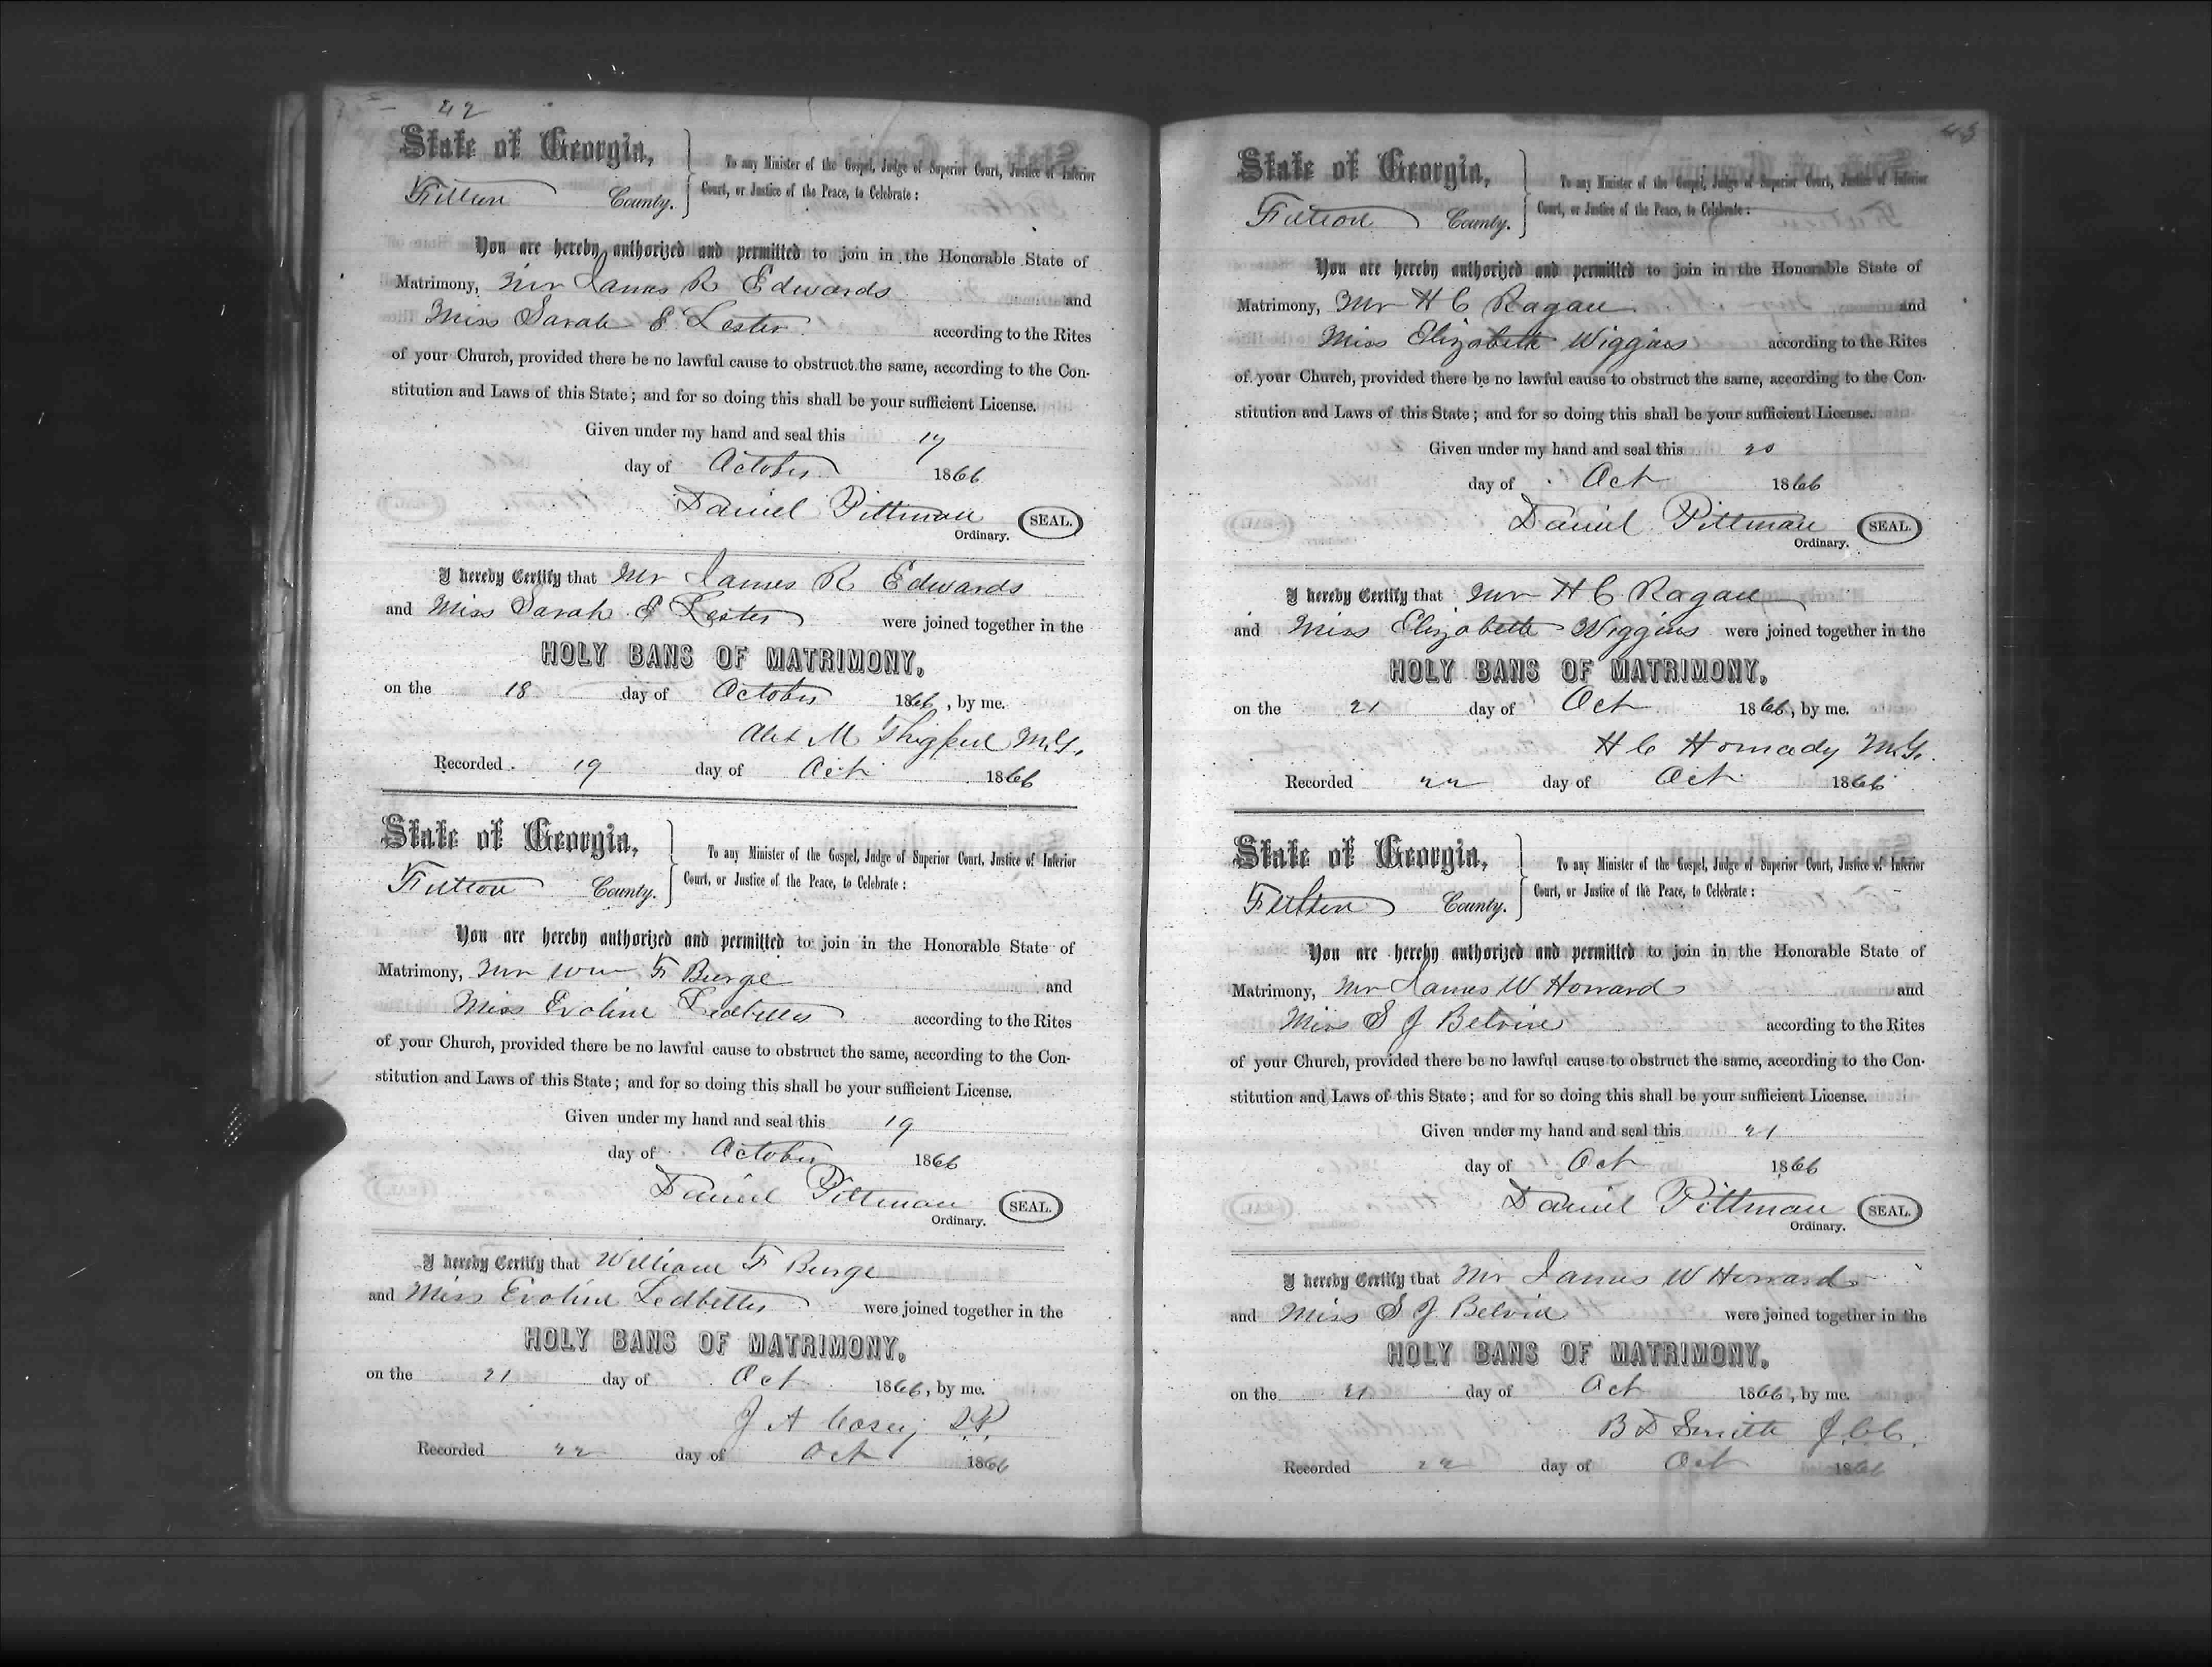 42
State of Georgia,
Fulton County.
To any Minister of the Gospel, Judge of Superior Court, Justice of Inferior
Court, or Justice of the Peace, to Celebrate :
You are hereby authorized and permitted to join in the Honorable State of
Matrimony, Mr James R Edwards and
Miss Sarah E Lester according to the Rites
of your Church, provided there be no lawful cause to obstruct the same, according to the Con-
stitution and Laws of this State; and for so doing this shall be your sufficient License.
Given under my hand and seal this 17
day of October 1866
Daniel Pittman SEAL.
Ordinary.
I hereby Certify that Mr James R Edwards
and Miss Sarah E Lester were joined together in the
HOLY BANS OF MATRIMONY,
on the 18 day of October 1866, by me.
Alex M Thigpen M.G.
Recorded 19 day of Oct 1866
State of Georgia,
Fulton County.
To any Minister of the Gospel, Judge of Superior Court, Justice of Inferior
Court, or Justice of the Peace, to Celebrate :
You are hereby authorized and permitted to join in the Honorable State of
Matrimony, Mr Wm F Burge and
Miss Evoline Ledbetter according to the Rites
of your Church, provided there be no lawful cause to obstruct the same, according to the Con-
stitution and Laws of this State; and for so doing this shall be your sufficient License.
Given under my hand and seal this 19
day of October 1866
Daniel Pittman SEAL.
Ordinary.
I hereby Certify that William F Burge
and Miss Evoline Ledbetter were joined together in the
HOLY BANS OF MATRIMONY,
on the 21 day of Oct 1866, by me.
J A Casey J.P.
Recorded 22 day of Oct 1866
43
State of Georgia,
Fulton County.
To any Minister of the Gospel, Judge of Superior Court, Justice of Inferior
Court, or Justice of the Peace, to Celebrate :
You are hereby authorized and permitted to join in the Honorable State of
Matrimony, Mr H C Ragan and
Miss Elizabeth Wiggins according to the Rites
of your Church, provided there be no lawful cause to obstruct the same, according to the Con-
stitution and Laws of this State; and for so doing this shall be your sufficient License.
Given under my hand and seal this 20
day of Oct 1866
Daniel Pittman SEAL.
Ordinary.
I hereby Certify that Mr H C Ragan
and Miss Elizabeth Wiggins were joined together in the
HOLY BANS OF MATRIMONY,
on the 21 day of Oct 1866, by me.
H C Hornady M.G.
Recorded 22 day of Oct 1866
State of Georgia,
Fulton County.
To any Minister of the Gospel, Judge of Superior Court, Justice of Inferior
Court, or Justice of the Peace, to Celebrate :
You are hereby authorized and permitted to join in the Honorable State of
Matrimony, Mr James W Howard and
Miss S J Belvin according to the Rites
of your Church, provided there be no lawful cause to obstruct the same, according to the Con-
stitution and Laws of this State; and for so doing this shall be your sufficient License.
Given under my hand and seal this 21
day of Oct 1866
Daniel Pittman SEAL.
Ordinary.
I hereby Certify that Mr James W Howard
and Miss S J Belvin were joined together in the
HOLY BANS OF MATRIMONY,
on the 21 day of Oct 1866, by me.
B D Smith J.I.C.
Recorded 22 day of Oct 1866